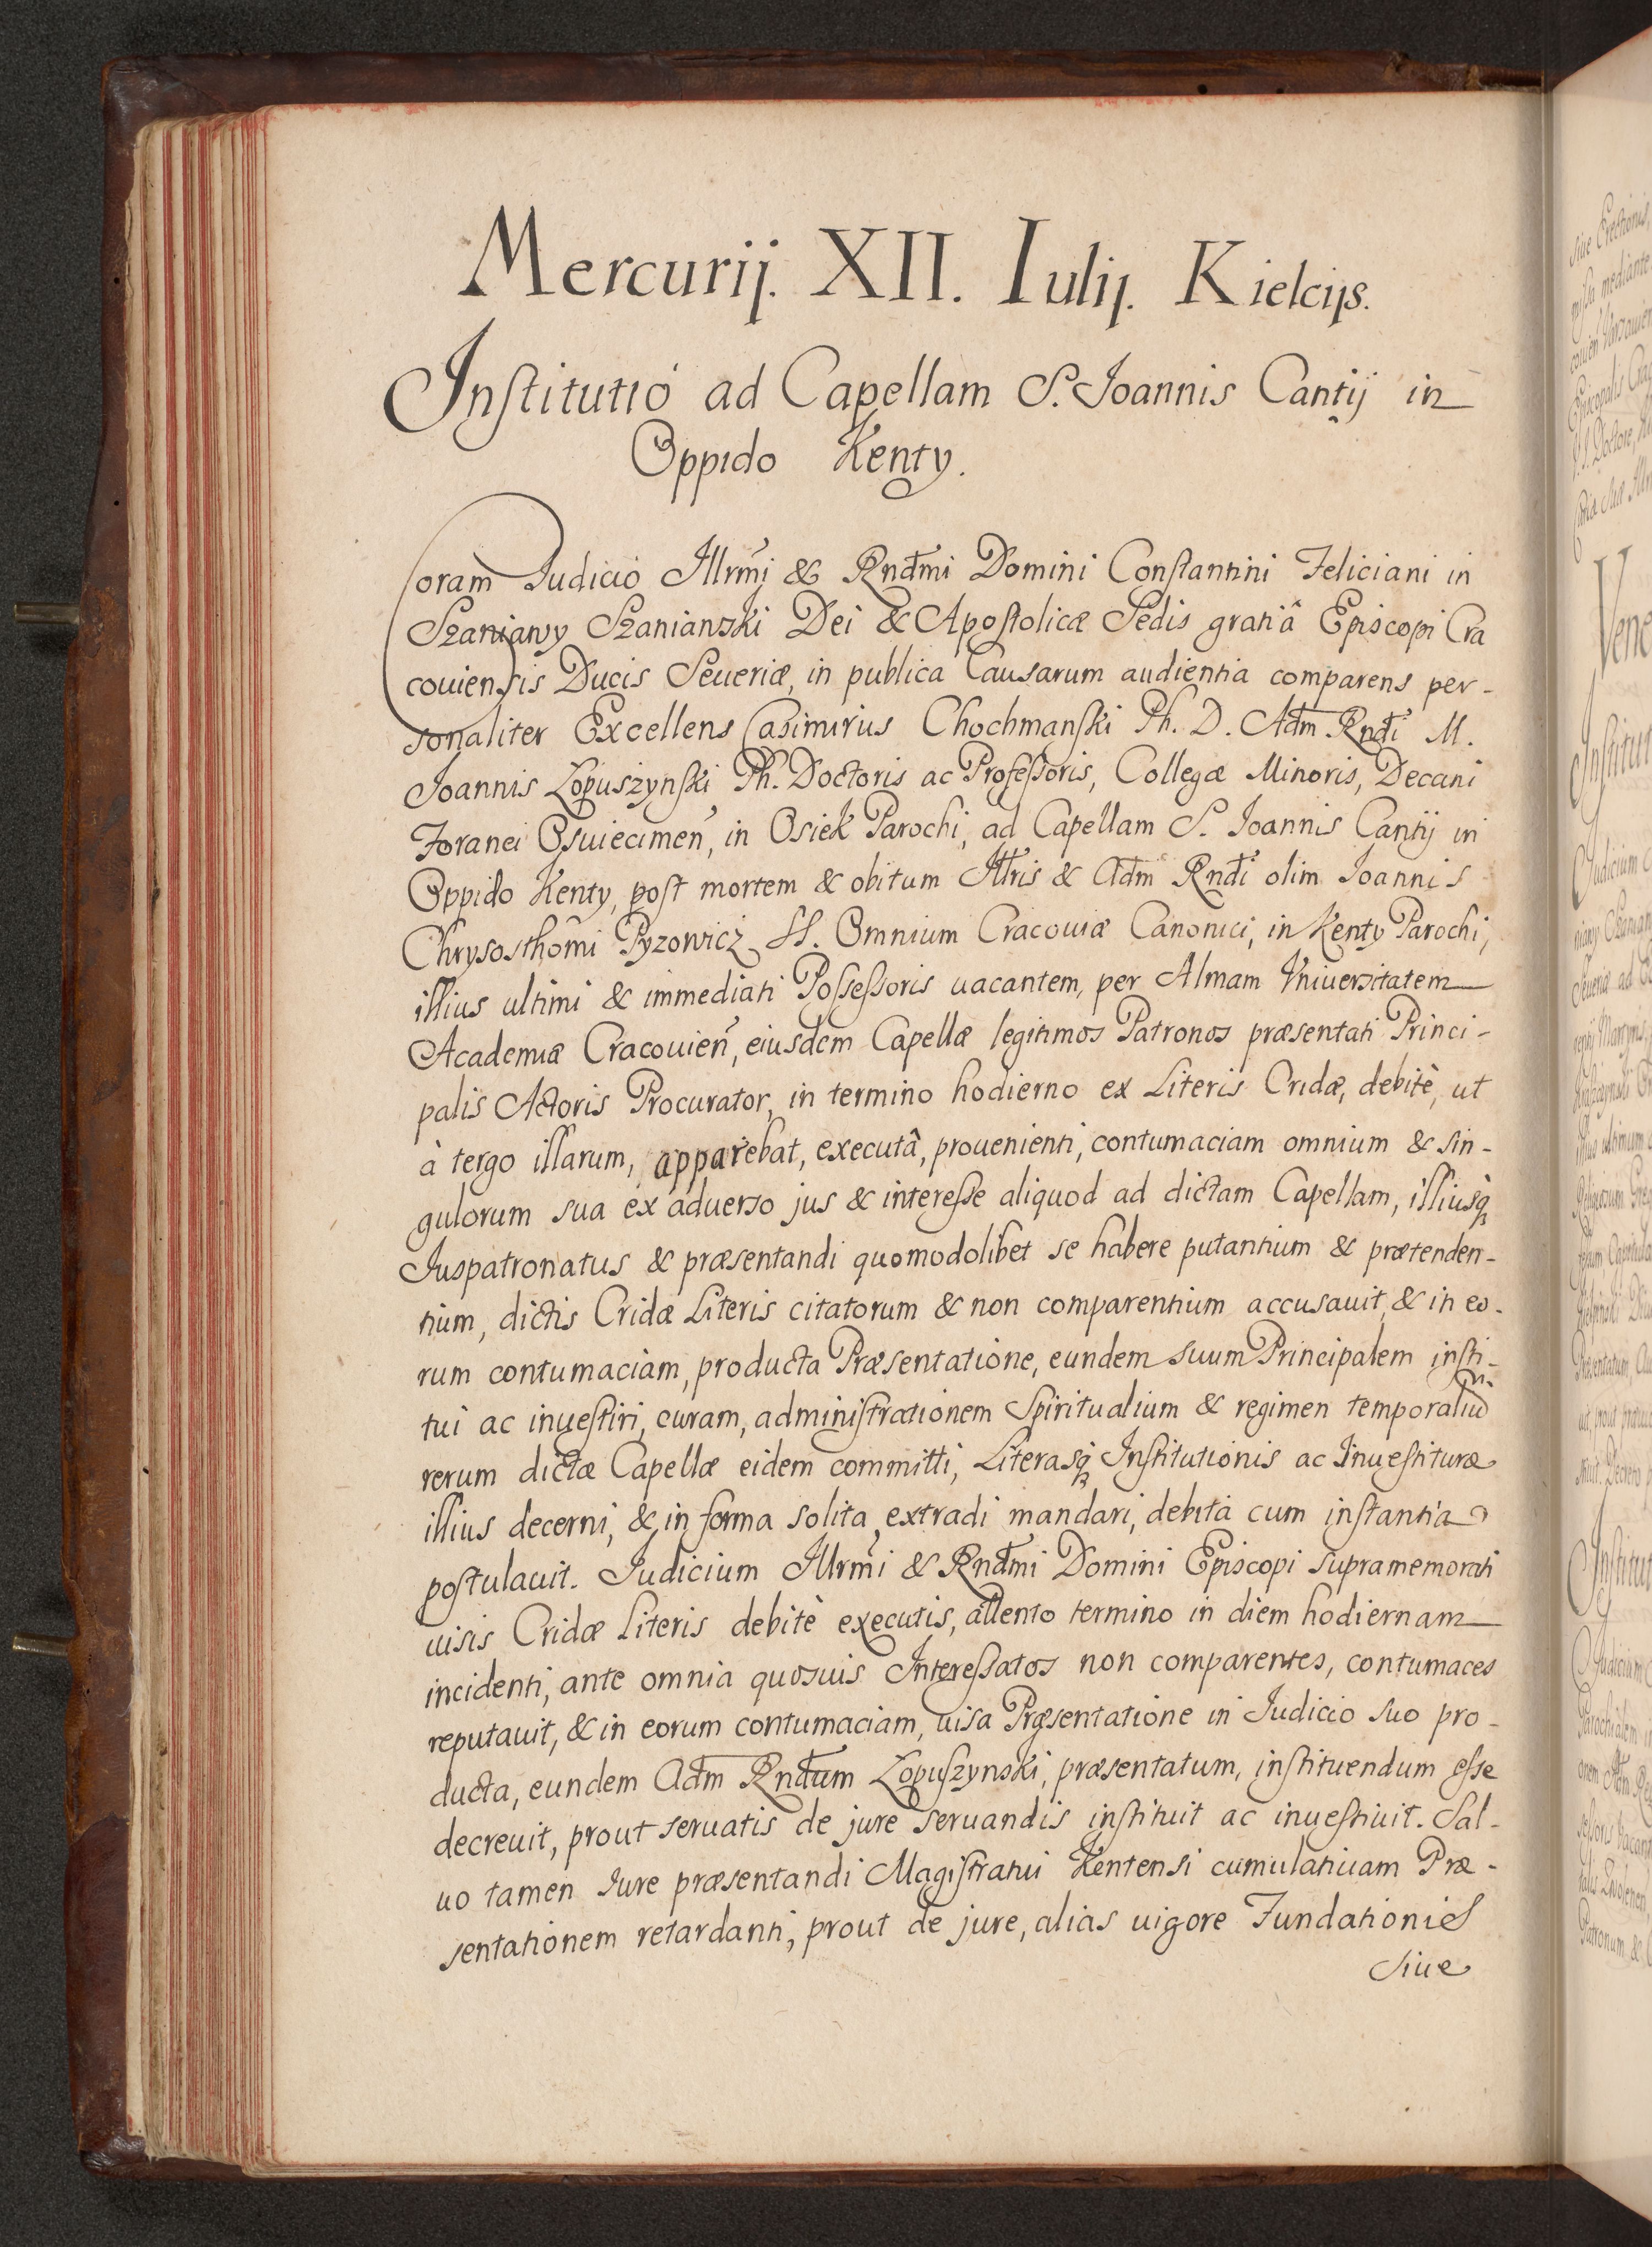 Mercurij. XII. Iulij. Kielcijs.
Institutio ad Capellam S. Joannis Cantij in
Oppido Kenty.
Coram Judicio Illrmi & Rndmi Domini Constantini Feliciani in
Szaniawy Szaniawski Dei & Apostolicæ Sedis gratiâ Episcopi Cra
couiensis Ducis Seueriæ, in publica Causarum audientia comparens per-
sonaliter Excellens Casimirus Chochmanski Ph. D. Adm Rndi M.
Joannis Lopuszynski Ph. Doctoris ac Professoris, Collegæ Minoris, Decani
Foranei Osuiecimen, in Osiek Parochi, ad Capellam S. Joannis Cantij in
Oppido Kenty, post mortem & obitum Illris & Adm Rndi olim Joannis
Chrysosthomi Pyzowicz SS. Omnium Cracouiæ Canonici, in Kenty Parochi,
illius ultimi & immediati Possessoris uacantem, per Almam Vniuersitatem
Academiæ Cracouien, eiusdem Capellæ legitimos Patronos præsentati Princi-
palis Actoris Procurator, in termino hodierno ex Literis Cridæ, debitè, ut
à tergo illarum, apparebat, executâ, prouenienti, contumaciam omnium & sin-
gulorum sua ex aduerso jus & interesse aliquod ad dictam Capellam, illiusq
Juspatronatus & præsentandi quomodolibet se habere putantium & prætenden-
tium, dictis Cridæ Literis citatorum & non comparentium accusauit, & in eo-
rum contumaciam, producta Præsentatione, eundem suum Principalem insti-
tui ac inuestiri, curam, administrationem Spiritualium & regimen temporaliu
rerum dictæ Capellæ eidem committi, Literasq Institutionis ac Inuestituræ
illius decerni, & in forma solita extradi mandari, debita cum instantia
postulauit. Judicium Illrmi & Rndmi Domini Episcopi supramemorati
uisis Cridæ Literis debitè executis, attento termino in diem hodiernam
incidenti, ante omnia quosuis Interessatos non comparentes, contumaces
reputauit, & in eorum contumaciam, uisa Præsentatione in Judicio suo pro-
ducta, eundem Adm Rndum Lopuszynski, præsentatum, instituendum esse
decreuit, prout seruatis de jure seruandis instituit ac inuestiuit. Sal-
uo tamen Jure præsentandi Magistratui Kentensi cumulatiuam Præ-
sentationem retardanti, prout de jure, alias uigore Fundationis
Siue